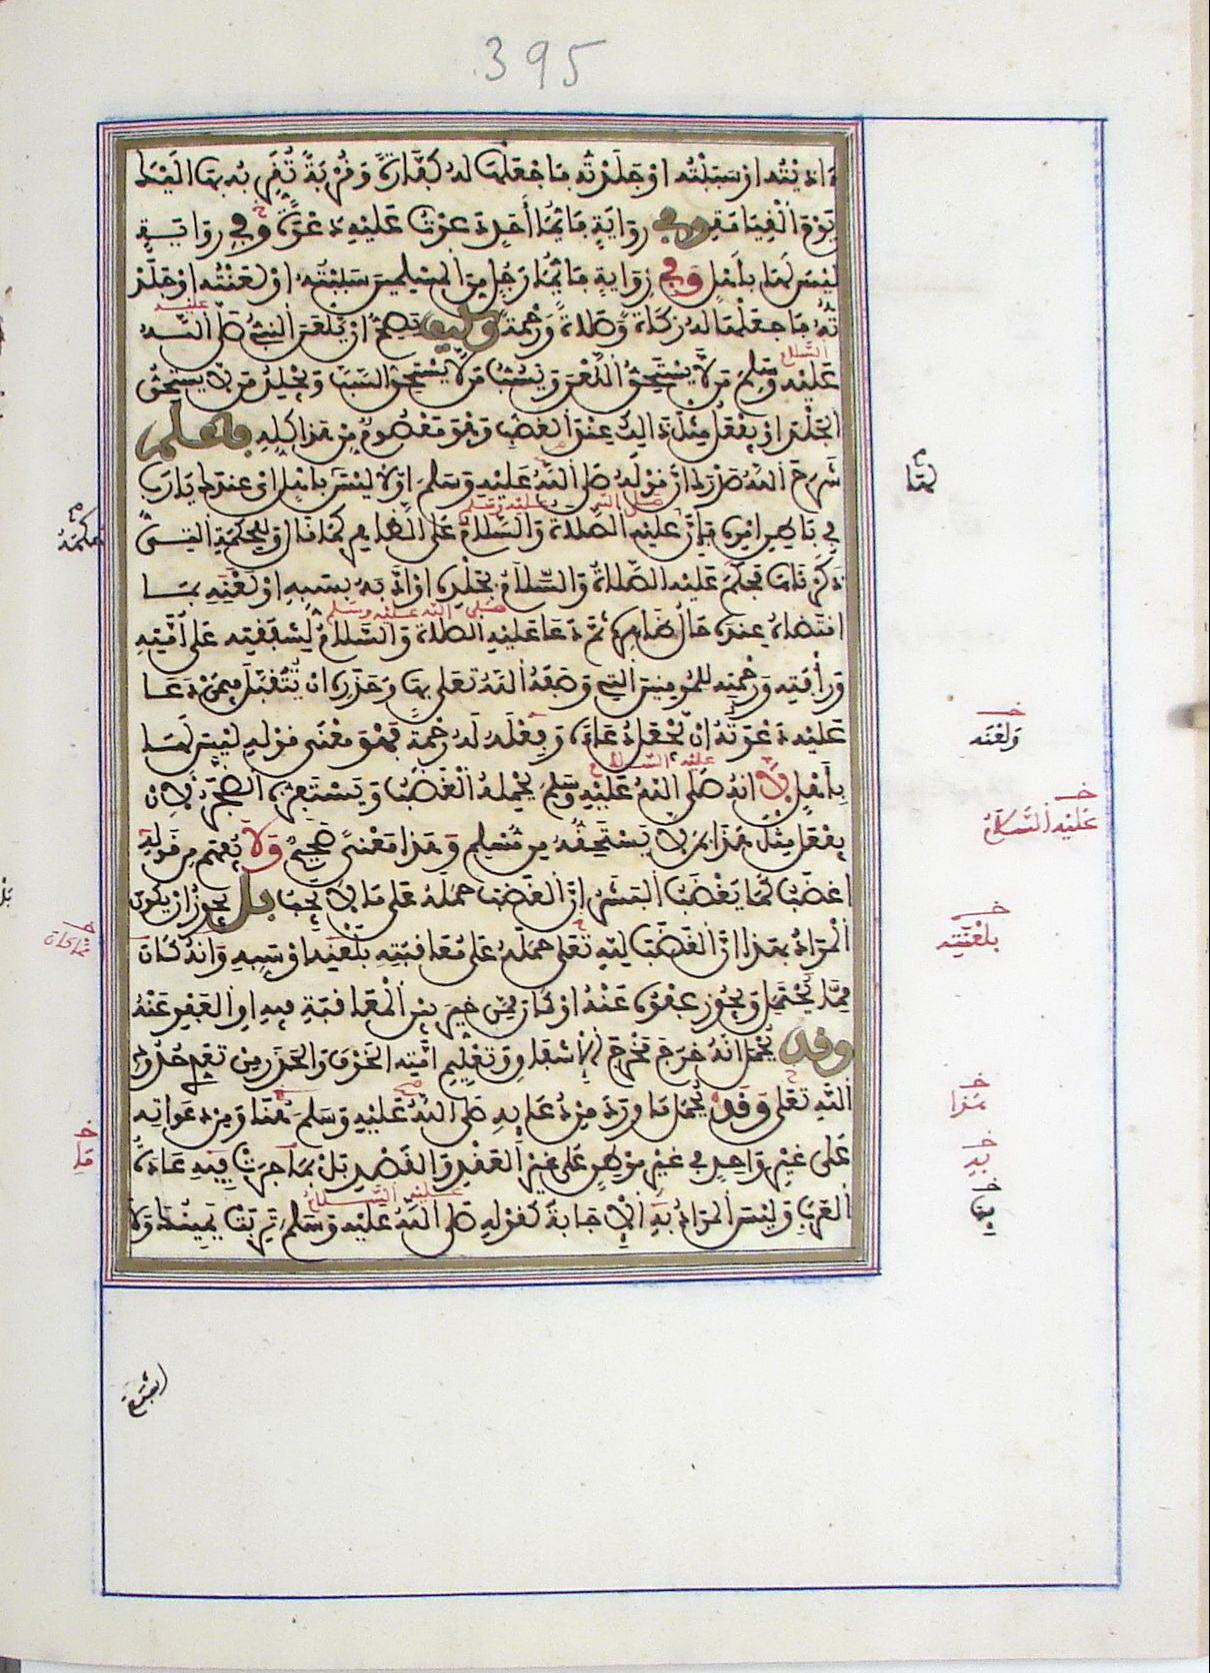 395
ءاذيته او سببته او جلدته فاجعلها له كفارة وقربة تقربه بها اليك
يوم القيامة وفي رواية فايما احد دعوت عليه دعوة وفي رواية
ليس لها باهل وفي رواية فايما رجل من المسلمين سببته او لعنته او جلد
ته فاجعلها له زكاة وصلاة ورحمة وكيف يصح ان يلعن النبي صلى الله
عليه السلام
عليه وسلم من لا يستحق اللعن ويسب من لا يستحق السب ويجلد من لا يستحق
الجلد او يفعل مثل ذالك عند الغضب وهو معصوم من هذا كله فاعلم
شرح الله صدرك ان قوله صلى الله عليه وسلم اولا ليس باهل اي عندك يارب
في باطن امره فان عليه الصلاة والسلام على الظاهر كما قال وللحكمة التي
صلى الله عليه وسلم
ذكرناها فحكم عليه الصلاة والسلام بجلده او ادبه بسبه او لعنه بما
اقتضاه عنده حال ظاهره ثم دعا عليه الصلاة والسلام لشفقته على امته
صلى الله عليه وسلم
ورأفته ورحمته للمومنين التي وصفه الله تعلى بها وحذره ان يتقبل فيمن دعا
عليه دعوته ان يجعل دعاءه وفعله له رحمة فهو معنى قوله ليس لها
باهل لا انه صلى الله عليه وسلم يحمله الغضب ويستفزه الضجر لان
عليه السلام
يفعل مثل هذا بمن لا يستحقه من مسلم وهذا معنى صحيح ولا يفهم من قوله
اغضب كما يغضب البشر ان الغضب حمله على ما لا يجب بل يجوز ان يكون
المراد بهذا ان الغضب لله تعلى حمله على معاقبته بلعنه او سبه وانه كان
مما يحتمل ويجوز عفوه عنه او كان مما خير بين المعاقبة فيه او العفو عنه
وقد يحمل انه خرج مخرج الاشفاق وتعليم امته الخوف والحذر من تعدي حدود
الله تعلى وقد يحمل ما ورد من دعايه صلى الله عليه وسلم هنا ومن دعواته
على غير واحد في غير موطن على غير العقد والقصد بل بما جرت به عادة
العرب وليس المراد به الاجابة كقوله صلى الله عليه وسلم تربت يمينك ولا
عليه السلام
لها
ولعنه
عليه السلام
بلعنته
هذا
به
اشبع